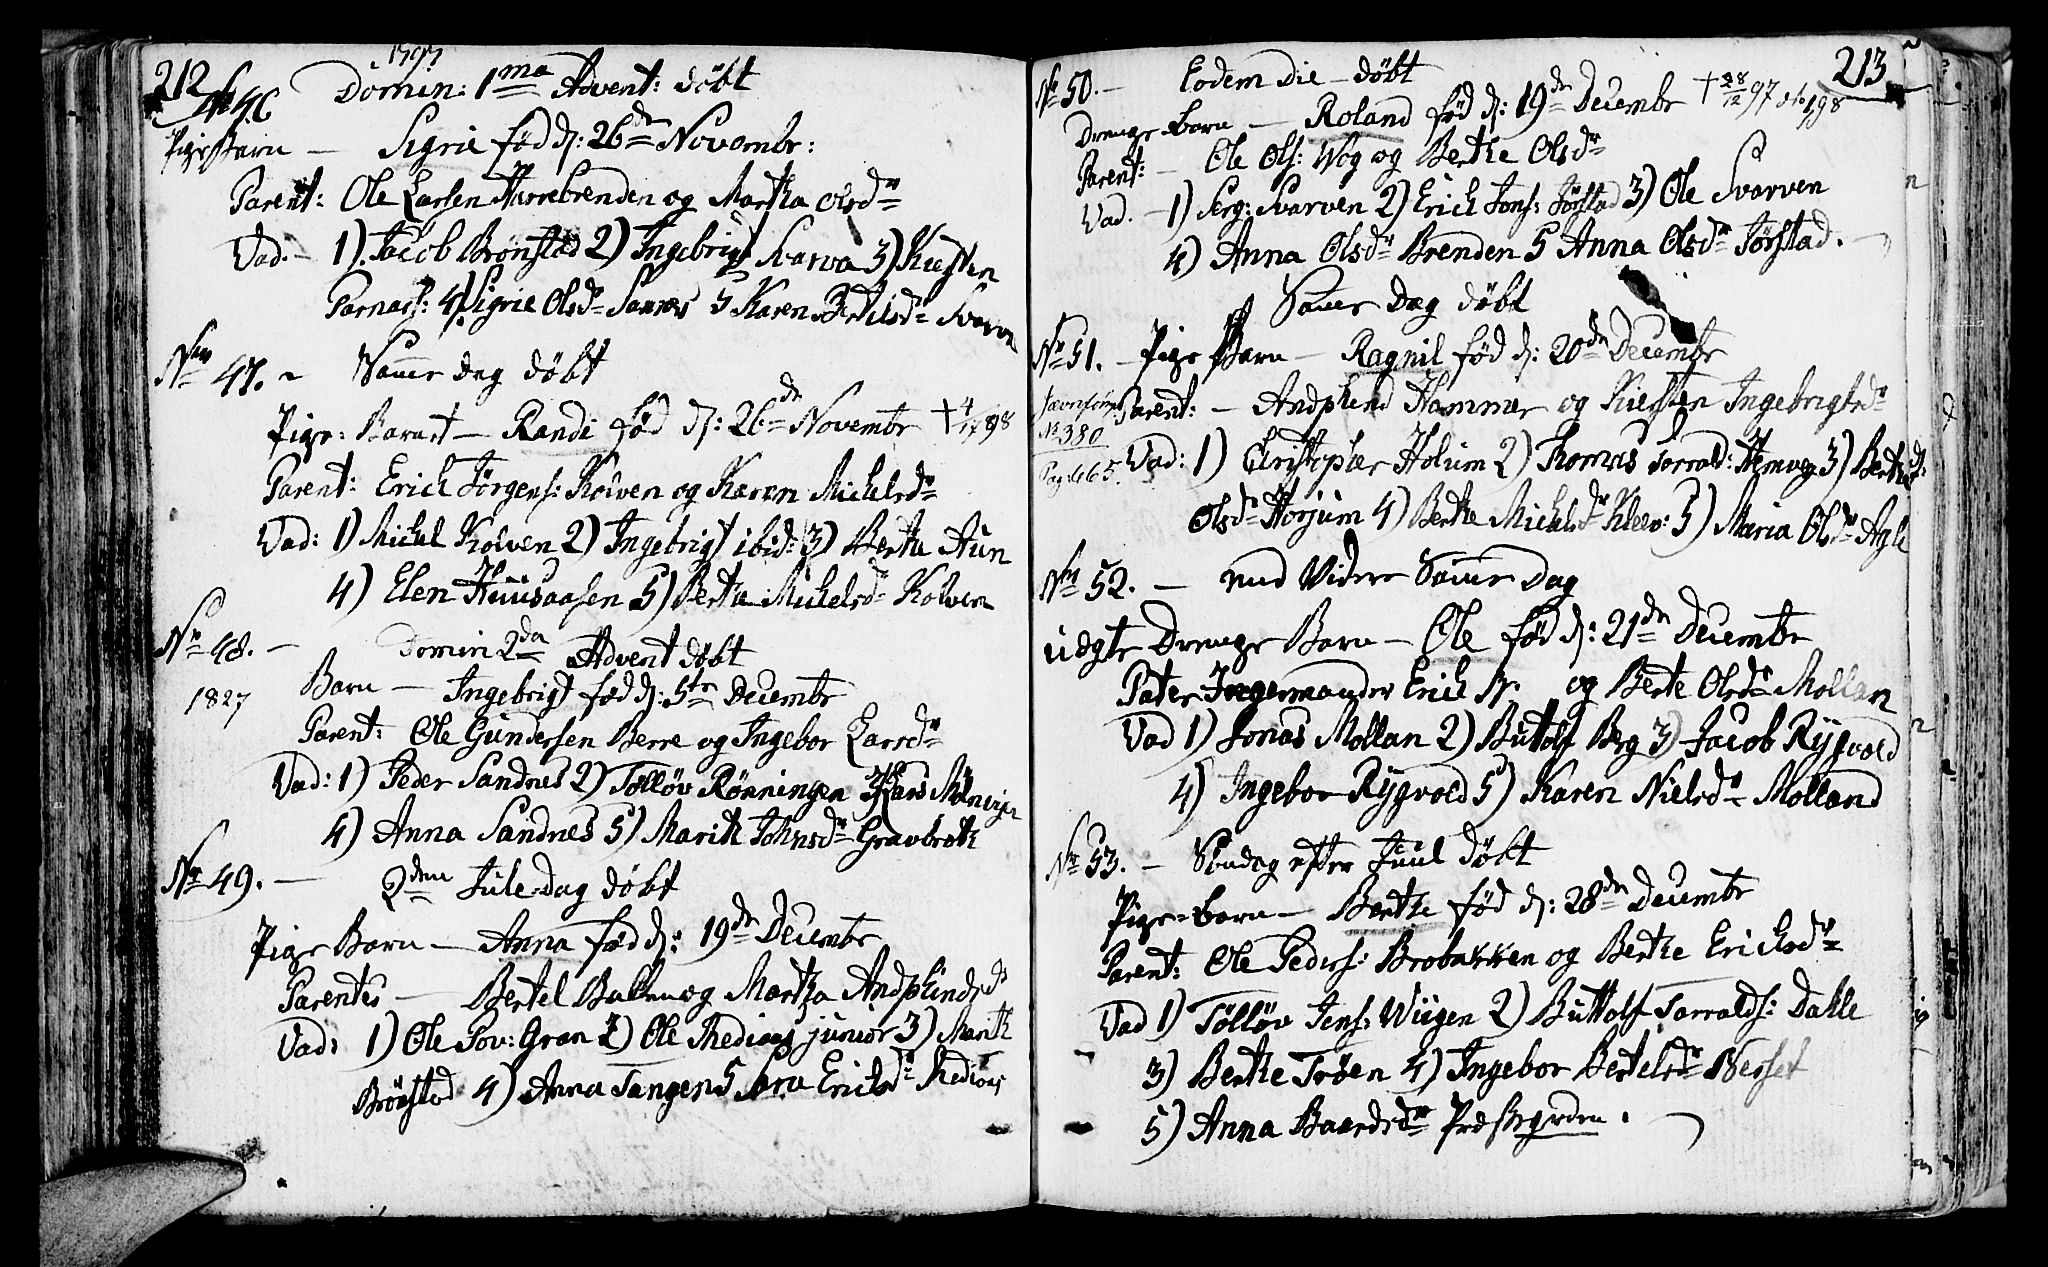 212
1797
No 46 Domin: 1ma Advent: døbt
Pige Barn — Sigrie fød d: 26de Novembr:
Parent: Ole Larsen Harrebrenden og Martha Olsdr
Vad. — 1) Jacob Brønstad 2) Ingebrigt Svarva 3) Kiersten
Parnass: 4) Sigrie Olsdr Sannes 5 Karen Bertilsdr Svarva
No 47. — Samme dag døbt
Pige: Barnet — Randi fød d: 26de Novembr † 98
Parent: Erich Jørgens: Kolven og Karen Michelsdr
Vad: 1) Michel Kolven 2) Ingebrigt ibid: 3) Berthe Aun
4) Elen Huusaasen 5) Berthe Michelsdr Kolven
No 48. — Domin 2da Advent døbt
1827 Barn — Ingebrigt fød d: 5te Decembr
Parent: Ole Gundersen Berre og Ingebor Larsdr
Vad: 1) Peder Sandnes 2) Tølløv Rønningen 3) Lars
4) Anna Sandnes 5) Marith Johnsdr Gravbrøth
No 49. — 2den Jule-Dag døbt
Pige Barn — Anna fød d: 19de Decembr
Parentes — Bertel Bakken og Martha Andphindsdr
Vad: 1) Ole Pov: Gran 2) Ole Medioas junior 3) Marith
Brønstad 4) Anna Tangen 5 Ericksdr Medioas
213
No 50. — Eodem Die — døbt
Drenge barn — Roland fød d: 19de Decembr † 28/12 97
Parent: — Ole Ols: Wog og Berthe Olsdr
Vad. — 1) Serg: Svarven 2) Erich Jons: Jørstad 3) Ole Svarven
4) Anna Olsdr Brenden 5 Anna Olsdr Jørstad. —
Samme Dag døbt
No 51. — Pige Barn — Ragnil fød d: 20de Decembr
Jevnførs Parent: — Andphind Hammer og Kiersten Ingebrigtsdr
No 380
Pag: 465. Vad: 1) Christopher Holum 2) Thomas Torrald: Hemveg 3) Berthe
Olsdr Horjum 4) Berthe Michelsdr Kleev: 5) Maria Olsdr Agle
No 52. — end videre Samme Dag
uægte Drenge Barn — Ole fød d: 21de Decembr
Pater Ingermander Erich N. og Berte Olsdr Mollan
Vad 1) Jonas Mollan 2) Buttolf Berg 3) Jacob Rygvold
4) Ingebor Rygvold 5) Karen Nielsdr Molland
No 53. — Søndag efter Juul døbt
Pige-barn — Berthe fød d: 28de Decembr
Parent: Ole Peders: Brobakken og Berthe Ericksdr
Vad 1) Tølløv Jens: Wiigen 2) Buttolf Torralds: Dahle
3) Berthe Trøen 4) Ingebor Bertelsdr Nerset
5) Anna Baardsdr Præstegrden.